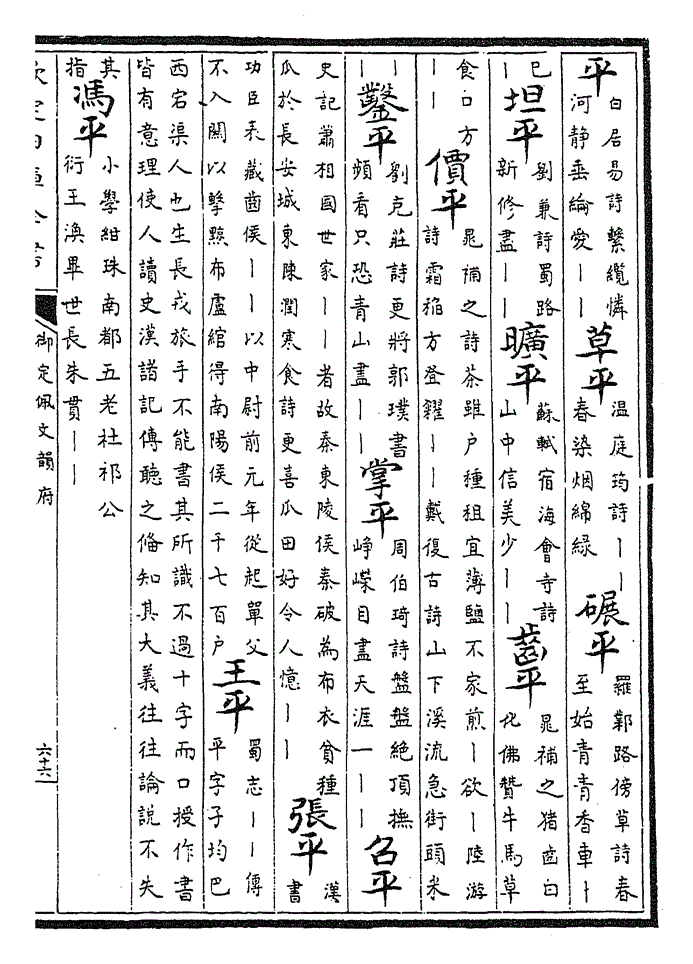 平 白居易詩繫纜憐河静垂綸愛丨丨 草平 温庭筠詩丨丨春染烟綿緑 碾平 羅鄴路傍草詩春至始青青香車丨
已丨 坦平 劉兼詩蜀路新修盡丨丨 曠平 蘇軾宿海會寺詩山中信美少丨丨 齒平 晁補之猪齒臼化佛贊牛馬草
食口方丨丨 價平 晁補之詩茶雖户種租宜薄鹽不家煎丨欲丨陸游詩霜稻方登糴丨丨戴復古詩山下溪流急街頭米
丨丨 鑿平 劉克莊詩更將郭璞書頻看只恐青山盡丨丨 掌平 周伯琦詩盤盤絶頂撫崢嶸目盡天涯一丨丨 召平
史記蕭相國世家丨丨者故秦東陵侯秦破為布衣貧種瓜於長安城東陳潤寒食詩更喜瓜田好令人憶丨丨 張平 漢書
功臣表蔵齒侯丨丨以中尉前元年從起單父不入關以擊黥布盧綰得南陽侯二千七百户 王平 蜀志丨丨傳平字子均巴
西宕渠人也生長戎旅手不能書其所識不過十字而口授作書皆有意理使人讀史漢諸記傳聽之俻知其大義往往論說不失
其指 馮平 小學紺珠南都五老杜祁公衍王渙畢世長朱貫丨丨
欽定四庫全書 御定佩文韻府 六十六